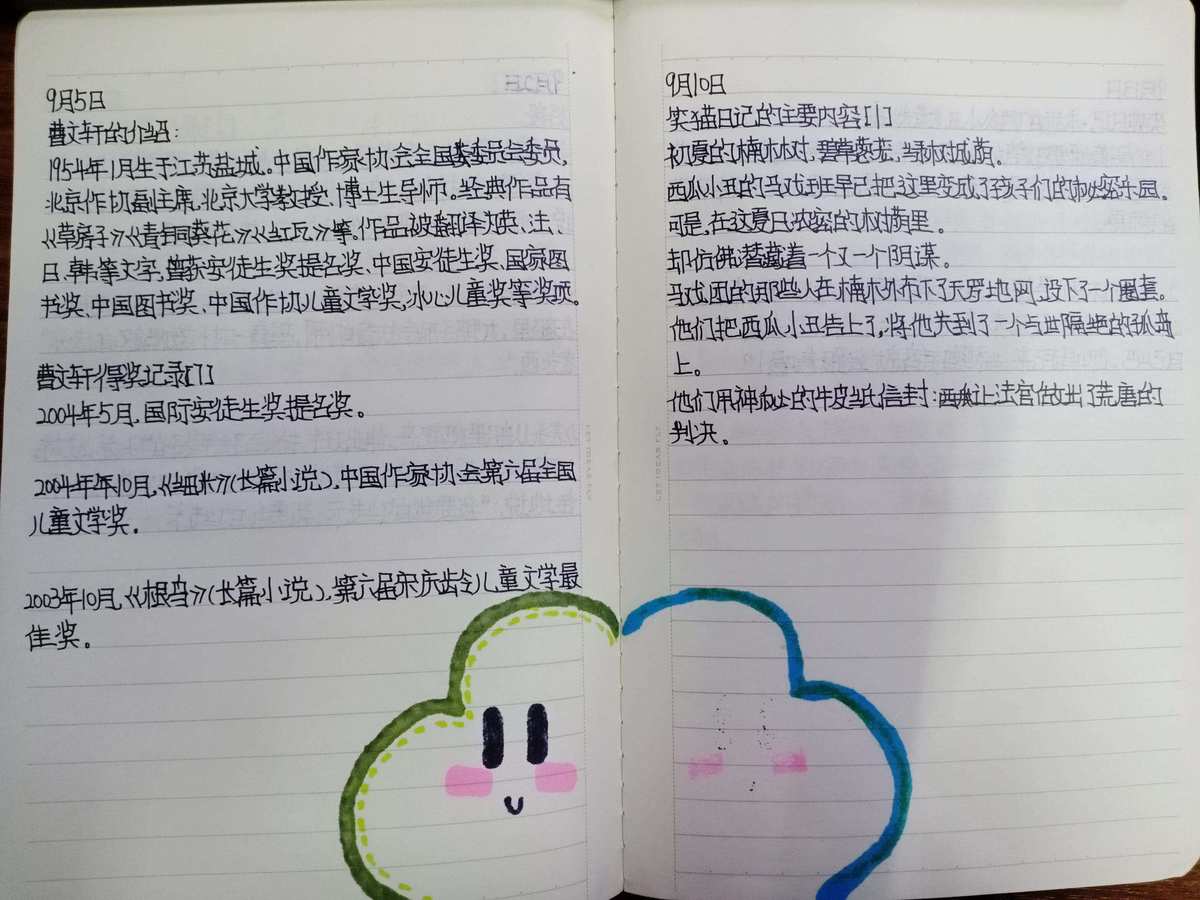 9月5日
曹文轩的介绍:
1954年1月生于江苏盐城。中国作家协会全国委委员会委员,
北京作协副主席,北京大学教授、博士生导师。经典作品有
《草房子》《青铜葵花》《红瓦》等。作品被翻译为英、法、
日、韩等文字,曾获安徒生奖提名奖、中国安徒生奖、国家图
书奖、中国图书奖、中国作协儿童文学奖,冰心儿童奖等奖项。
曹文轩得奖记录[1]
2004年5月,国际安徒生奖提名奖。
2004年年10月,《细米》(长篇小说),中国作家协会第六届全国
儿童文学奖。
2003年10月,《根鸟》(长篇小说),第六届宋庆龄儿童文学最
佳奖。
9月10日
笑猫日记的主要内容[1]
初夏的楠木林,碧草葱茏,绿树成荫。
西瓜小丑的马戏班早已把这里变成了孩子们的秘密乐园。
可是,在这夏日浓密的树荫里。
却仿佛潜藏着一个又一个阴谋。
马戏团的那些人在楠木外布下了天罗地网,设下了一个圈套。
他们把西瓜小丑告上了,将他关到了一个与世隔绝的孤岛
上。
他们用神秘的牛皮纸信封:让法官做出了荒唐的
判决。
LET IDEAS FLY